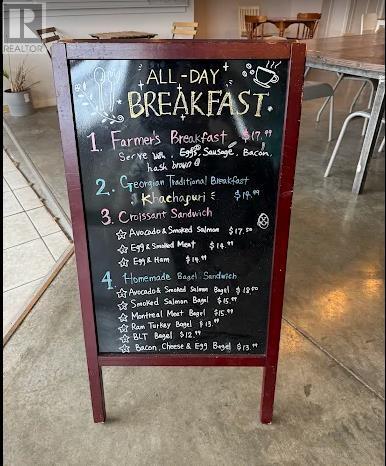 REALTOR
ALL-DAY
BREAKFAST
1. Farmer's Breakfast $17.99
Serve with, Eggs, Sausage, Bacon,
hash brown
2. Georgian Traditional Breakfast
Khachapuri $19.99
3. Croissant Sandwich
Avocado & Smoked Salmon $17.50
Egg & Smoked Meat $14.99
Egg & Ham $14.99
4 Homemade Bagel Sandwich
Avocado & Smoked Salmon Bagel $18.50
Smoked Salmon Bagel $15.99
Montreal Meat Bagel $15.99
Ram Turkey Bagel $13.99
BLT Bagel $12.99
Bacon, Cheese & Egg Bagel $13.99